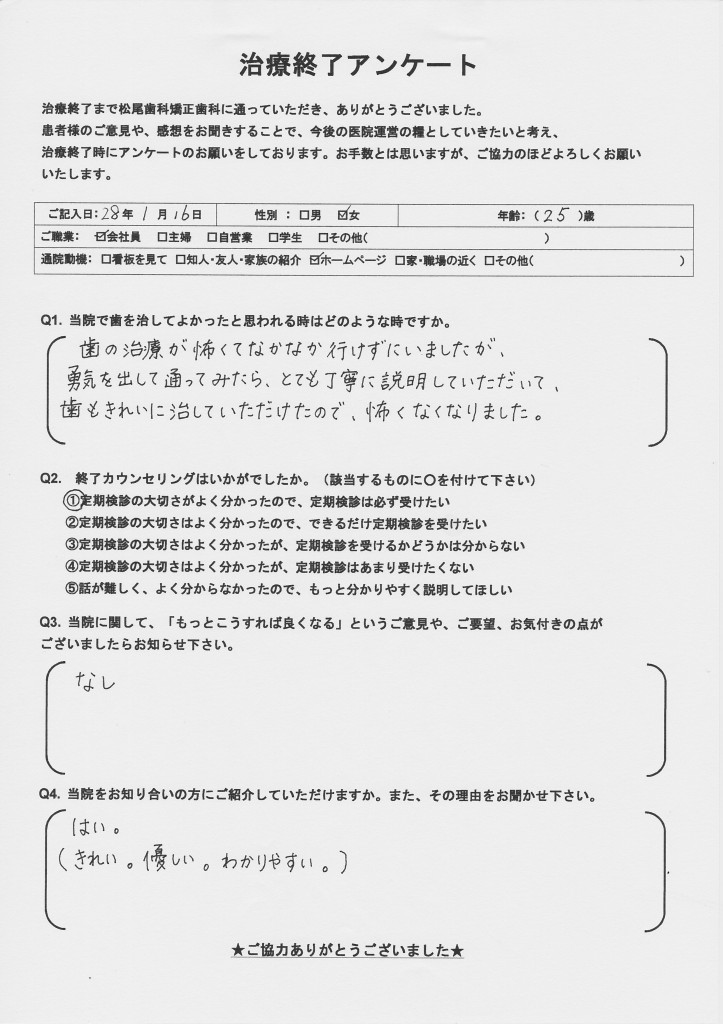 治療終了アンケート
治療終了まで松尾歯科矯正歯科に通っていただき、ありがとうございました。
患者様のご意見や、感想をお聞きすることで、今後の医院運営の糧としていきたいと考え、
治療終了時にアンケートのお願いをしております。お手数とは思いますが、ご協力のほどよろしくお願い
いたします。
ご記入日：28年 1月 16日 性別 ： □男 ☑女 年齢：（ 25 ）歳
ご職業： ☑会社員 □主婦 □自営業 □学生 □その他（ ）
通院動機： □看板を見て □知人・友人・家族の紹介 ☑ホームページ □家・職場の近く □その他（ ）
Q1. 当院で歯を治してよかったと思われる時はどのような時ですか。
歯の治療が怖くてなかなか行けずにいましたが、
勇気を出して通ってみたら、とても丁寧に説明していただいて、
歯もきれいに治していただけたので、怖くなくなりました。
Q2. 終了カウンセリングはいかがでしたか。（該当するものに○を付けて下さい）
①定期検診の大切さがよく分かったので、定期検診は必ず受けたい
②定期検診の大切さはよく分かったので、できるだけ定期検診を受けたい
③定期検診の大切さはよく分かったが、定期検診を受けるかどうかは分からない
④定期検診の大切さはよく分かったが、定期検診はあまり受けたくない
⑤話が難しく、よく分からなかったので、もっと分かりやすく説明してほしい
Q3. 当院に関して、「もっとこうすれば良くなる」というご意見や、ご要望、お気付きの点が
ございましたらお知らせ下さい。
なし
Q4. 当院をお知り合いの方にご紹介していただけますか。また、その理由をお聞かせ下さい。
はい。
（きれい。優しい。わかりやすい。）
★ご協力ありがとうございました★